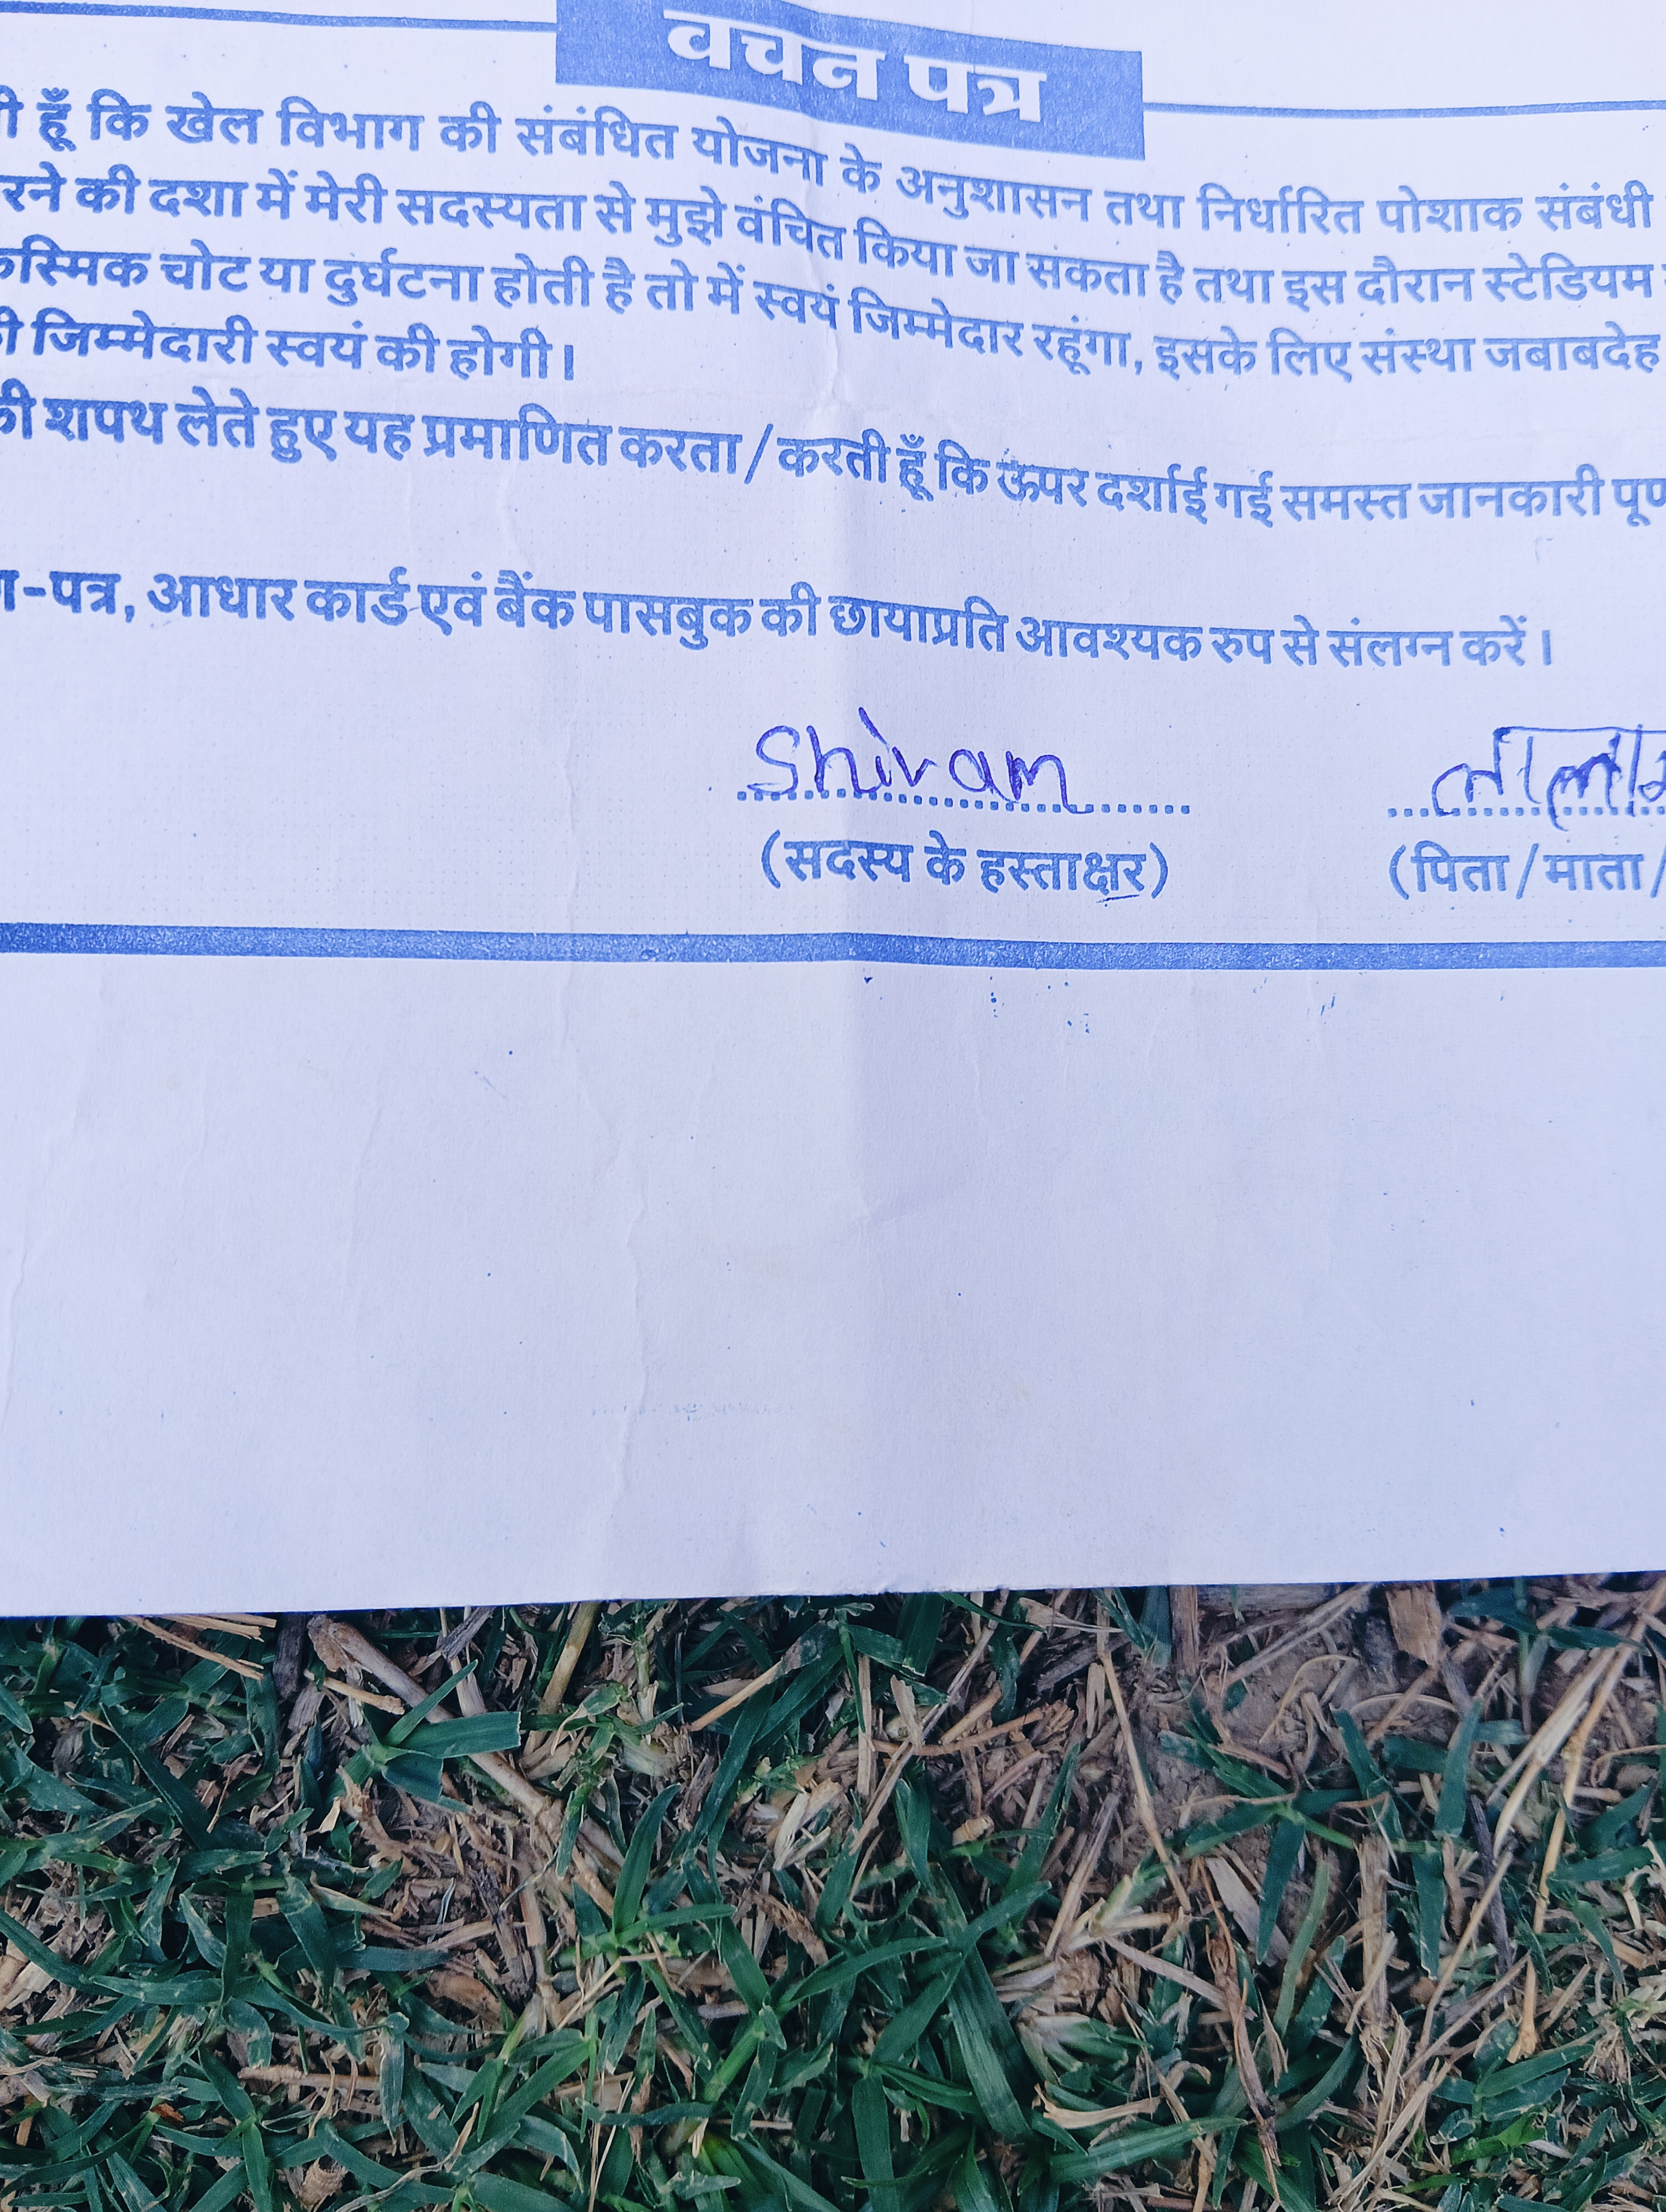 वचन पत्र
हूँ कि खेल विभाग की संबंधित योजना के अनुशासन तथा निर्धारित पोशाक संबंधी
रने की दशा में मेरी सदस्यता से मुझे वंचित किया जा सकता है तथा इस दौरान स्टेडियम
कस्मिक चोट या दुर्घटना होती है तो में स्वयं जिम्मेदार रहूंगा, इसके लिए संस्था जबाबदेह
जिम्मेदारी स्वयं की होगी।
की शपथ लेते हुए यह प्रमाणित करता/करती हूँ कि ऊपर दर्शाई गई समस्त जानकारी
-पत्र, आधार कार्ड एवं बैंक पासबुक की छायाप्रति आवश्यक रुप से संलग्न करें।
Shivam
(सदस्य के हस्ताक्षर) (पिता/माता/